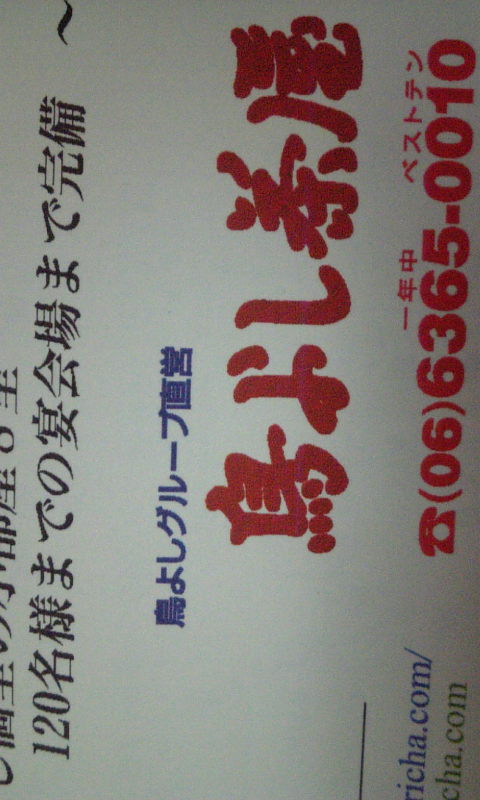 個室の小部屋8室
120名様までの宴会場まで完備 〜
鳥よしグループ直営
鳥よし茶屋
一年中 ベストテン
☎(06)6365-0010
richa.com/
cha.com